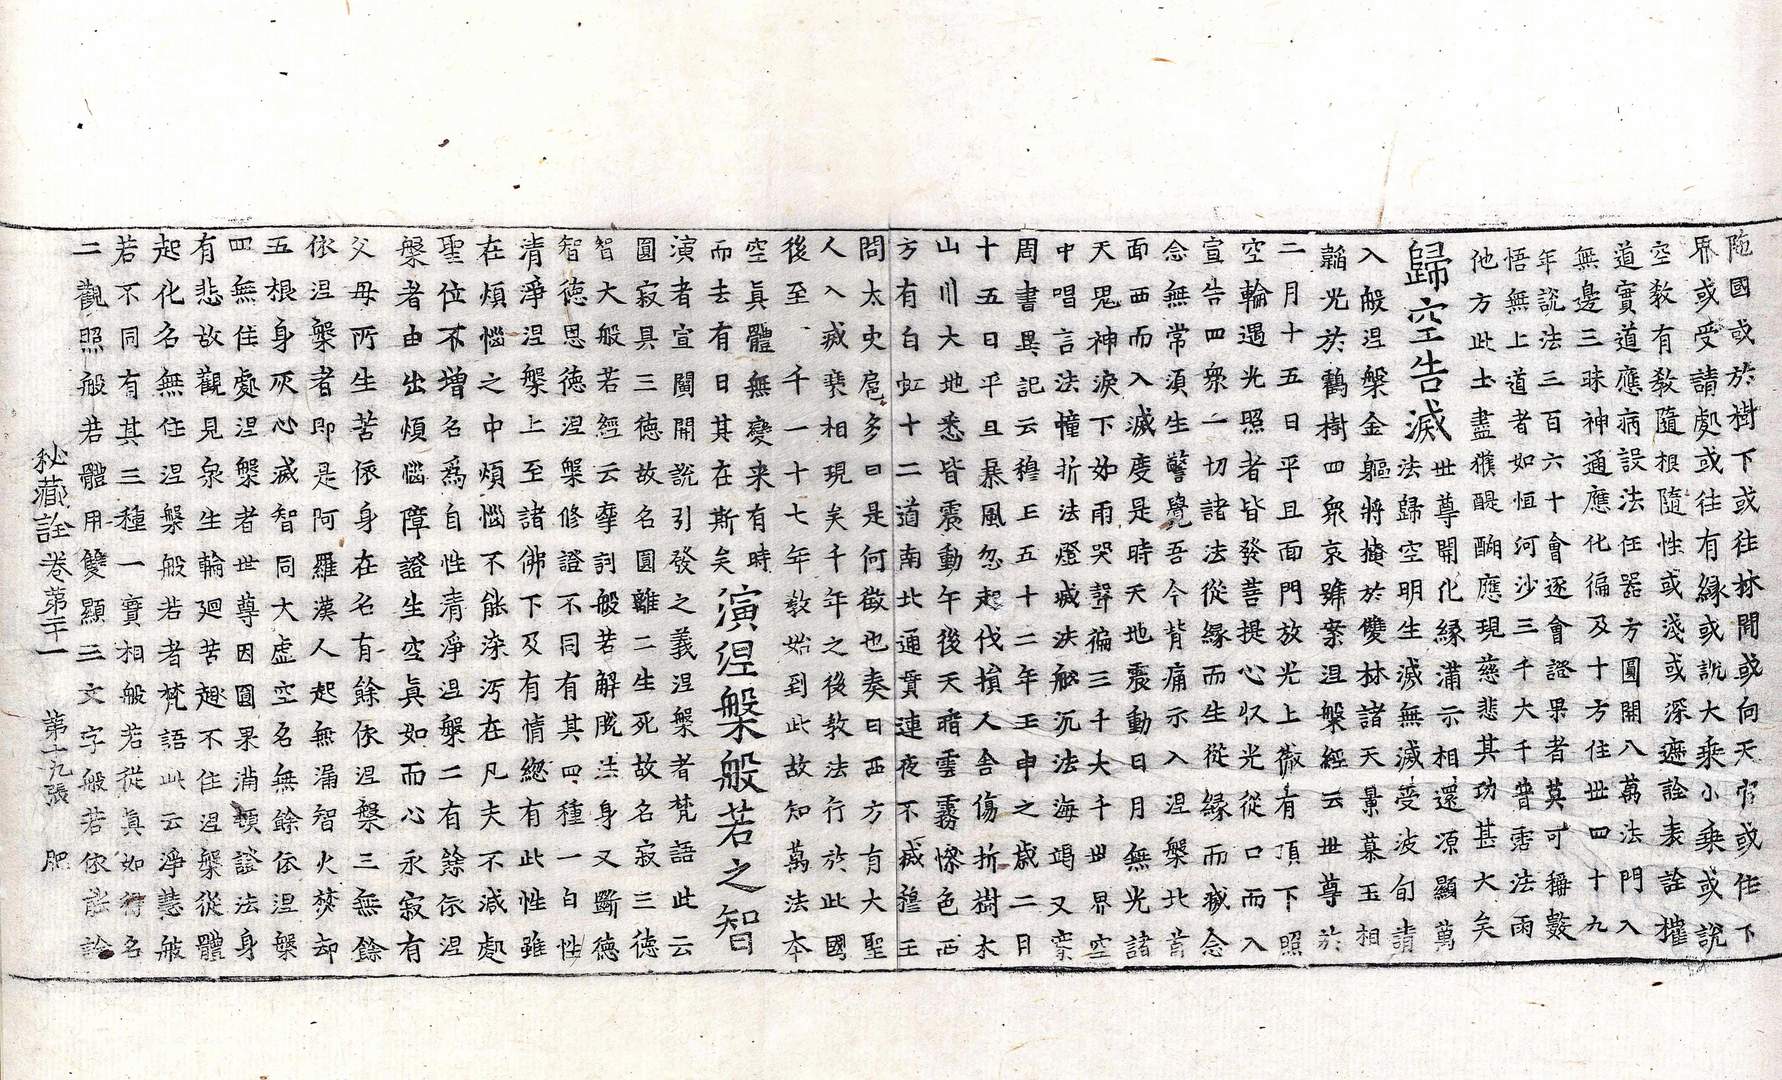 陁國或於樹下或往林間或向天宮或住下
界或受請處或往有縁或說大乘小乘或說
空教有教隨根隨性或淺或深遮詮表詮權
道實道應病設法任器方圓開八萬法門入
無邊三昧神通應化徧及十方住世四十九
年說法三百六十會逐會證果者莫可稱數
悟無上道者如恒河沙三千大千普霑法雨
他方此土盡獲醍醐應現慈悲其功甚大矣
歸空告滅法歸空明生滅無滅受波旬請
世尊開化縁滿示相還源顯萬
入般涅槃金軀將掩於雙林諸天景慕玉相
韜光於鶴樹四衆哀號案涅槃經云世尊於
二月十五日平旦面門放光上徹有頂下照
空輪遇光照者皆發菩提心収光從口而入
宣告四衆一切諸法從縁而生從縁而滅念
念無常須生警覺吾今背痛示入涅槃北首
面西而入滅度是時天地震動日月無光諸
天鬼神淚下如雨哭聲徧三千大千世界空
中唱言法幢折法燈滅法舩沉法海竭又案
周書異記云穆王五十二年壬申之歲二月
十五日平旦暴風忽起伐損人舍傷折樹木
山川大地悉皆震動午後天暗雲霧慘色西
方有白虹十二道南北通貫連夜不滅穆王
問太史扈多曰是何徵也奏曰西方有大聖
人入滅衰相現矣千年之後教法行於此國
後至一千一十七年教始到此故知萬法本
空眞體無變来有時
而去有日其在斯矣演涅槃般若之智
演者宣闡開說引發之義涅槃者梵語此云
圓寂具三德故名圓離二生死故名寂三德
智大般若經云摩訶般若解脫法身又斷德
智德恩德涅槃修證不同有其四種一自性
清淨涅槃上至諸佛下及有情緫有此性雖
在煩惱之中煩惱不能染污在凡夫不減處
聖位不增名爲自性清淨涅槃二有餘依涅
槃者由出煩惱障證生空眞如而心永寂有
父母所生苦依身在名有餘依涅槃三無餘
依涅槃者即是阿羅漢人起無漏智火焚却
五根身灰心滅智同大虛空名無餘依涅槃
四無住處涅槃者世尊因圓果滿頓證法身
有悲故觀見衆生輪迴苦趣不住涅槃從體
起化名無住涅槃般若者梵語此云淨慧般
若不同有其三種一實相般若從眞如得名
二觀照般若體用雙顯三文字般若依詮
秘藏詮卷第二十一　第十九張　肥